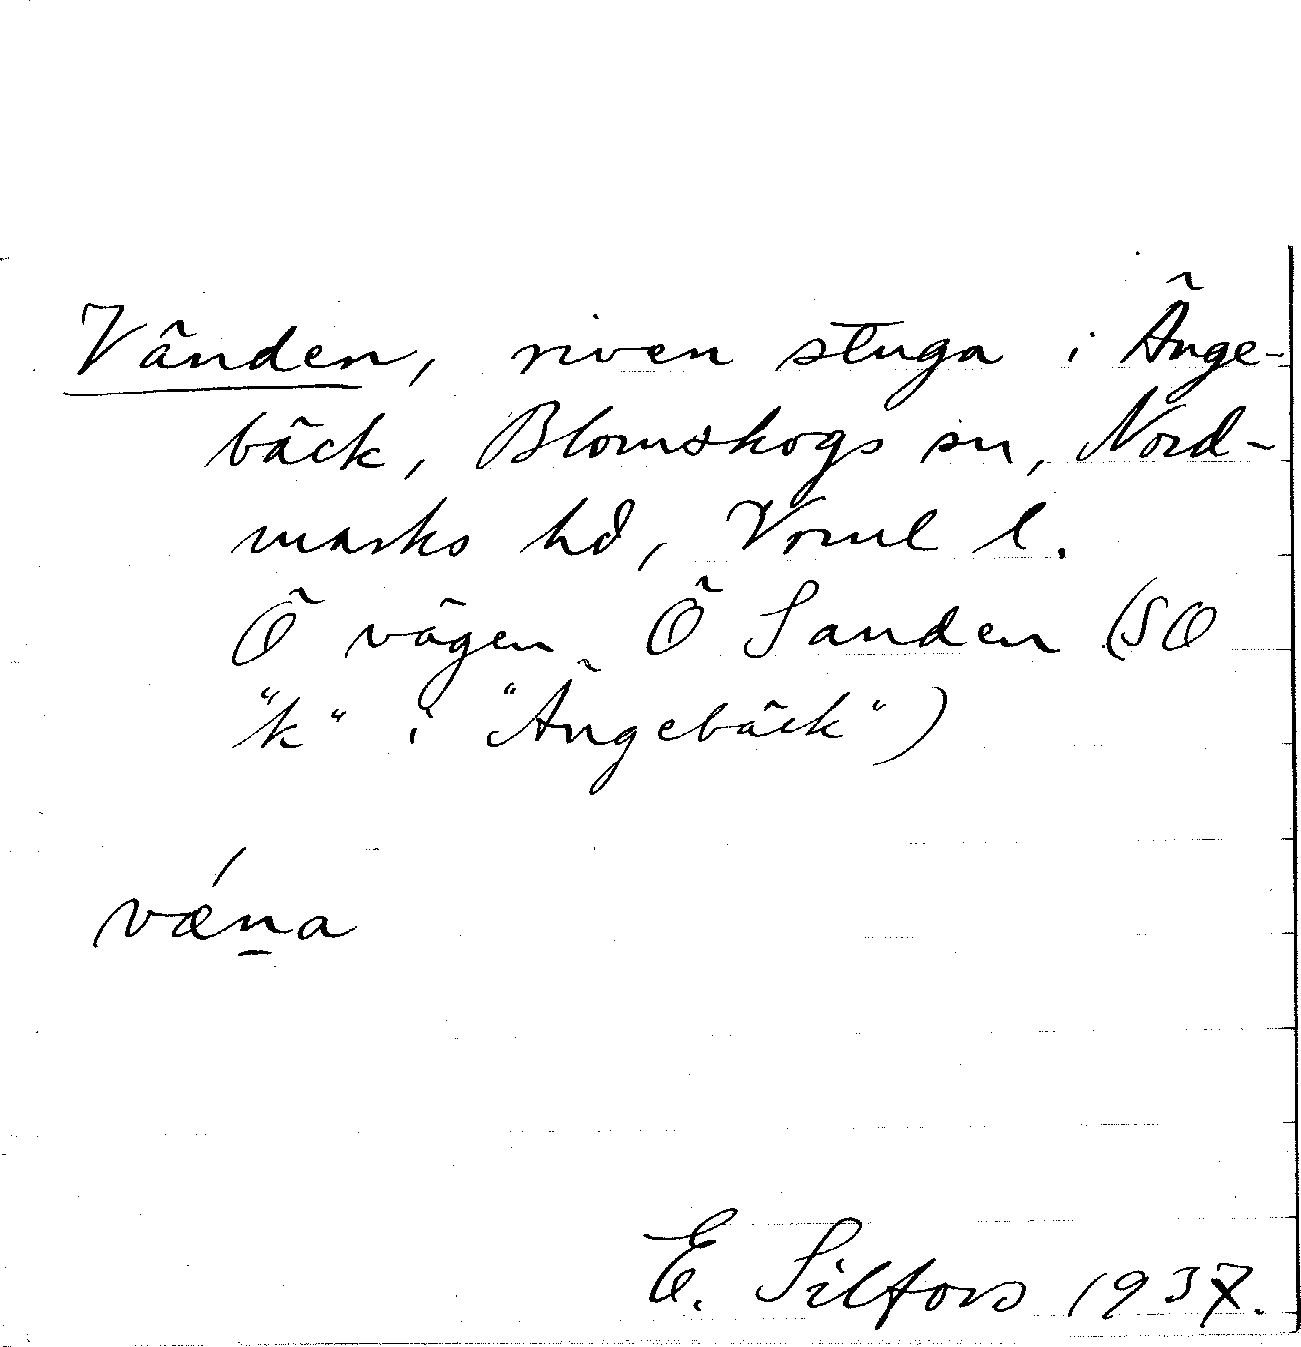 Vänden, riven stuga i Änge-
bäck, Blomskogs sn, Nord-
marks hd, Vrml l.
Ö vägen Ö Sanden (SO
"k" i "Ängebäck")
vǽna
E. Silfors 1937.